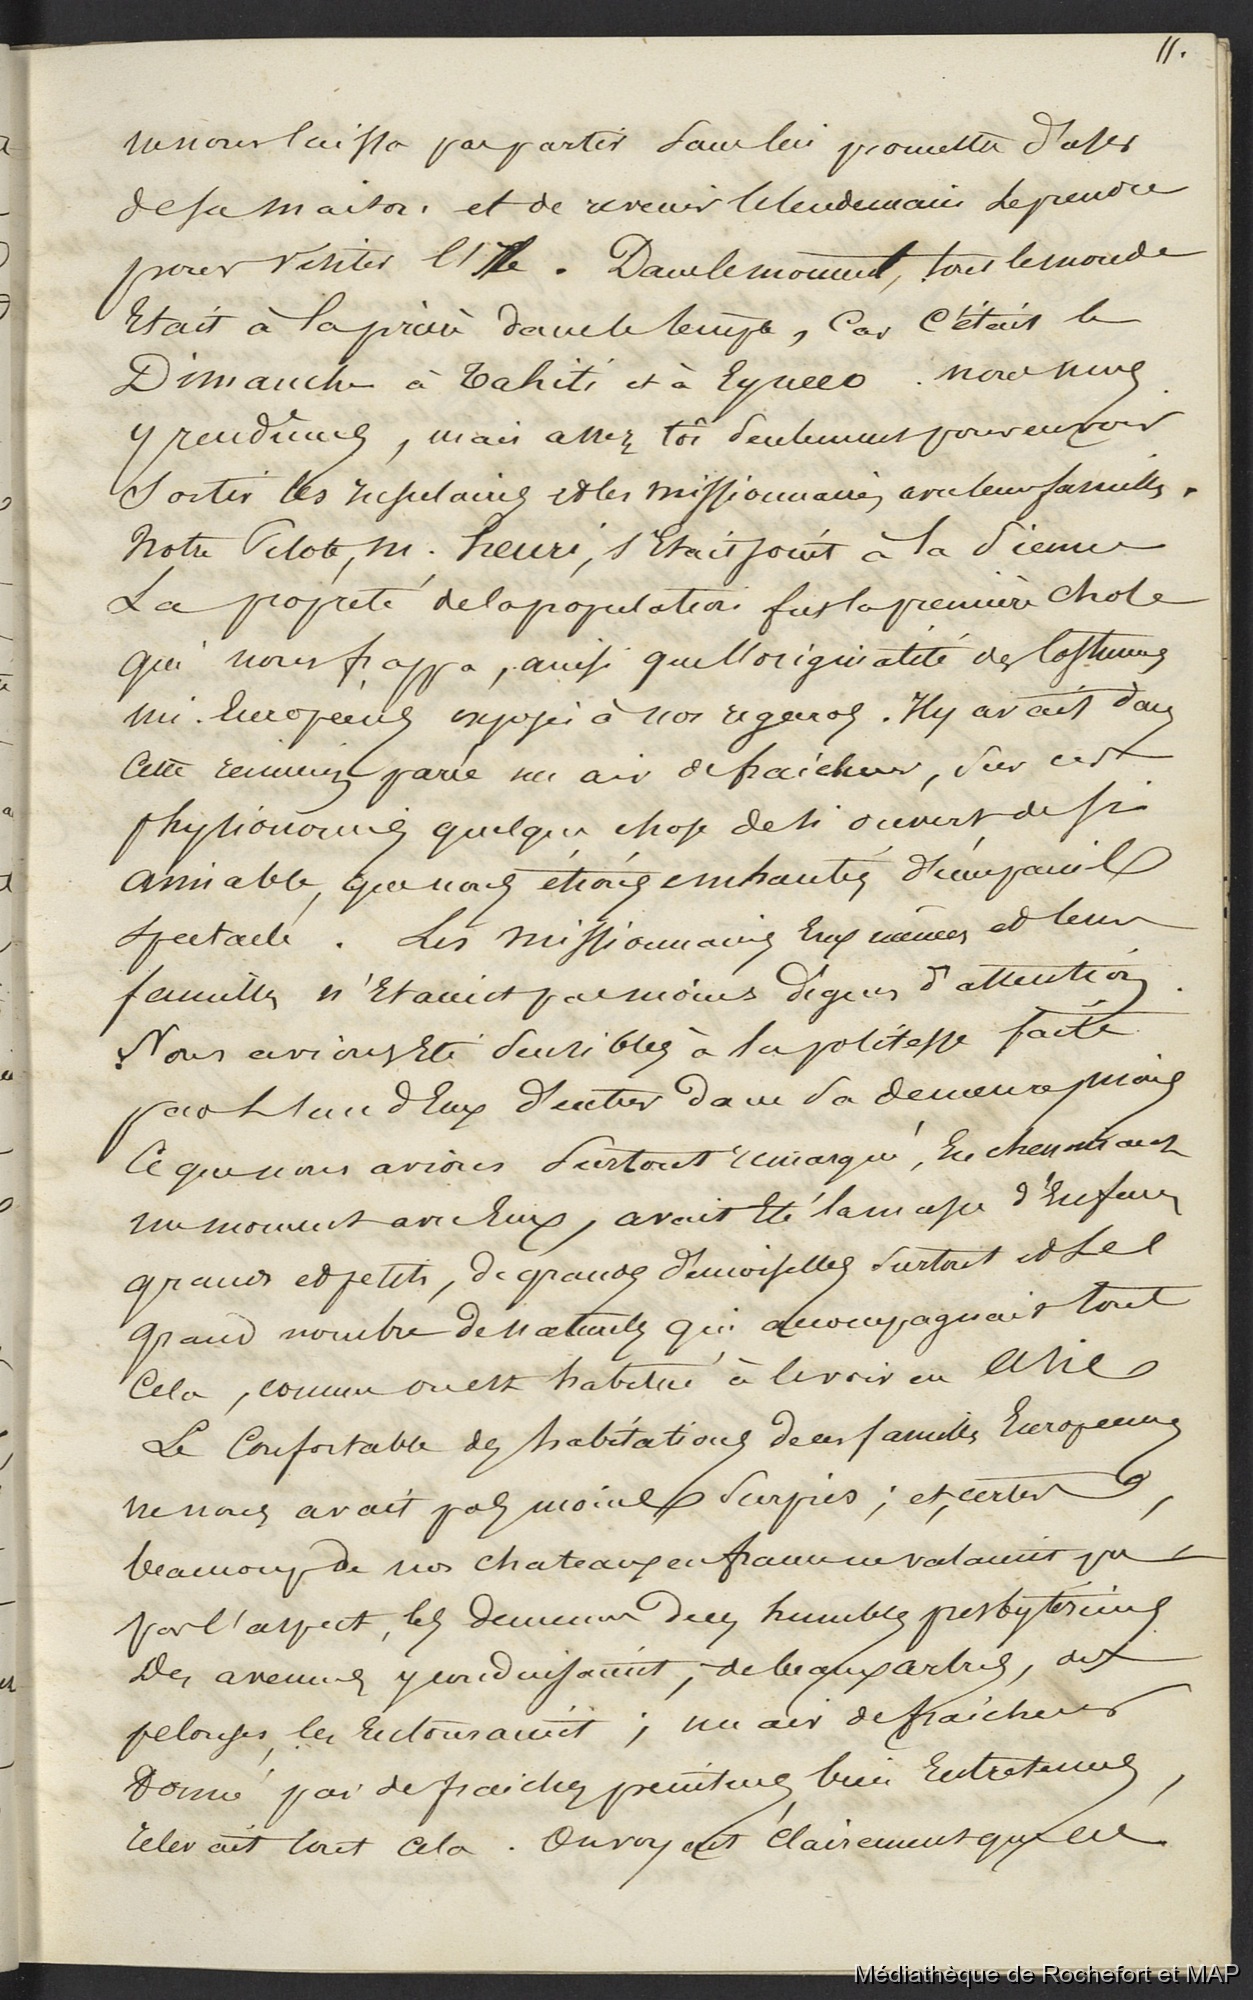 11.
ne nous laissa pas partir sans lui promettre d'user
de sa maison et de revenir le lendemain le prendre
pour visiter l'Ile. Dans le moment, tout le monde
Etait à la prière dans le temple, Car C'était le
Dimanche à Tahiti et à Eymeo. nous nous
y rendîmes, mais assez tôt seulement pour en voir
Sortir les insulaires et les missionnaires avec leurs familles.
Notre Pilote, m. henri, s'Etait joint à la sienne
La propreté de la population fut la première Chose
qui nous frappa, ainsi que l'originalité des Costumes
mi-Européens exposés à nos regards. Il y avait dans
Cette réunion parée un air de fraicheur, sur ces
physionomies quelque chose de si ouvert de si
aimable, que nous étions enchantés d'un pareil
Spectacle. Les missionnaires Eux mêmes et leurs
familles n'Etaient pas moins dignes d'attention.
Nous avions Eté sensibles à la politesse faite
par l'un d'Eux d'entrer dans sa demeure, mais
Ce que nous avions surtout remarqué, En cheminant
un moment avec Eux, avait Eté la masse d'Enfans
grands et petits, de grandes demoiselles surtout et le
grand nombre de naturels qui accompagnait tout
Cela, comme on est habitué à le voir en Asie
Le Confortable des habitations de ces familles Européennes
ne nous avait pas moins surpris; et, certes,
beaucoup de nos chateaux en france ne valaient pas
par l'aspect, les demeures de ces humbles presbytériens
Des avenues y conduisaient, de beaux arbres, des
pelouses, les Entouraient; un air de fraicheur
Donné par de fraiches peintures bien Entretenues,
relevait tout Cela. On voyait clairement que ces
Médiathèque de Rochefort et MAP